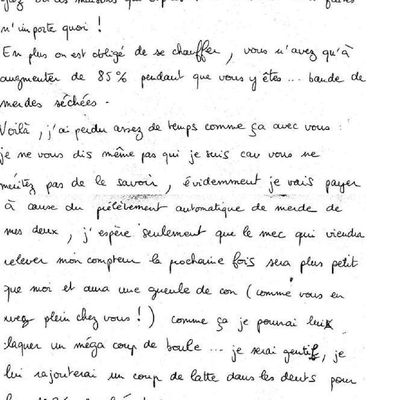 n'importe quoi !
En plus on est obligé de se chauffer, vous n'avez qu'à
augmenter de 85% pendant que vous y êtes... bande de
merdes séchées.
Voilà, j'ai perdu assez de temps comme ça avec vous
je ne vous dis même pas qui je suis car vous ne
méritez pas de le savoir, évidemment je vais payer
à cause du prélèvement automatique de merde de
mes deux, j'espère seulement que le mec qui viendra
relever mon compteur la prochaine fois sera plus petit
que moi et aura une gueule de con (comme vous en
avez plein chez vous !) comme ça je pourrai lui
claquer un méga coup de boule... je serai gentil, je
lui rajouterai un coup de latte dans les dents pour